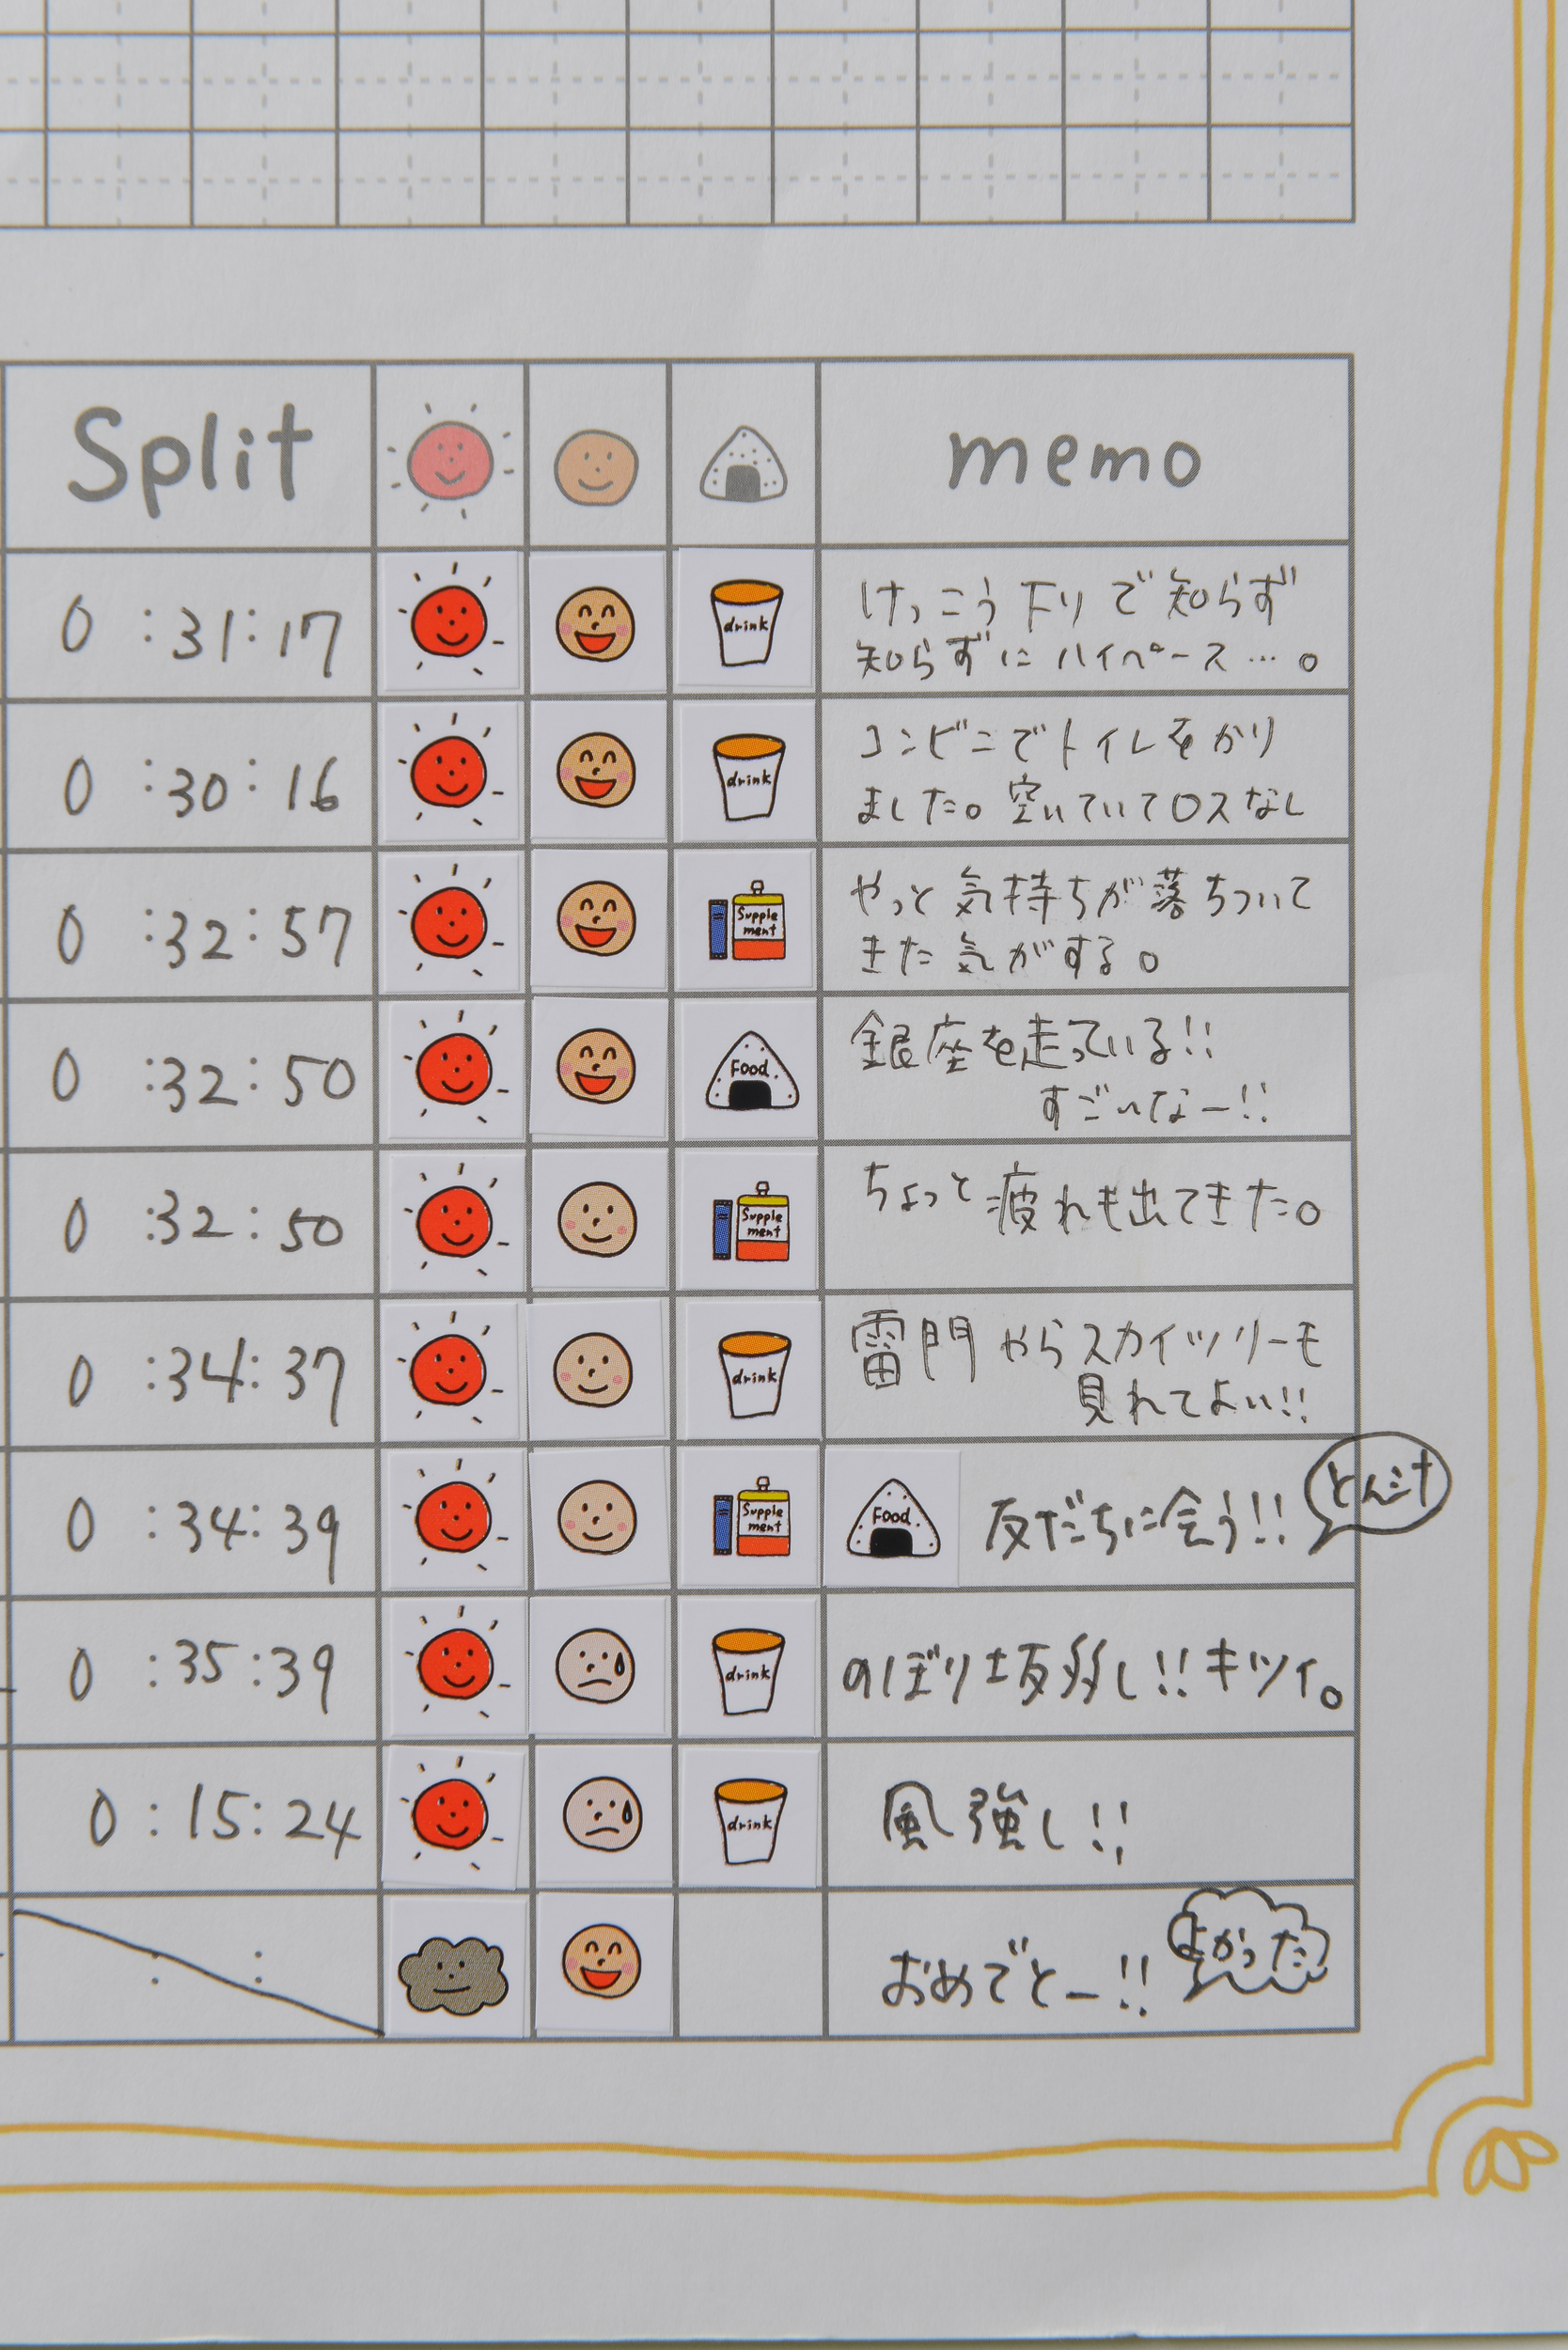 Split memo
0:31:17 drink けっこう下りで知らず
知らずにハイペース…。
0:30:16 drink コンビニでトイレをかり
ました。空いていてロスなし
0:32:57 Supple
ment やっと気持ちが落ちついて
きた気がする。
0:32:50 Food 銀座を走っている!!
すごいなー!!
0:32:50 Supple
ment ちょっと疲れも出てきた。
0:34:37 drink 雷門やらスカイツリーも
見れてよい!!
0:34:39 Supple
ment Food 友だちに会う!! とん汁
0:35:39 drink のぼり坂多し!!キツイ。
0:15:24 drink 風強し!!
: : おめでとー!! よかった